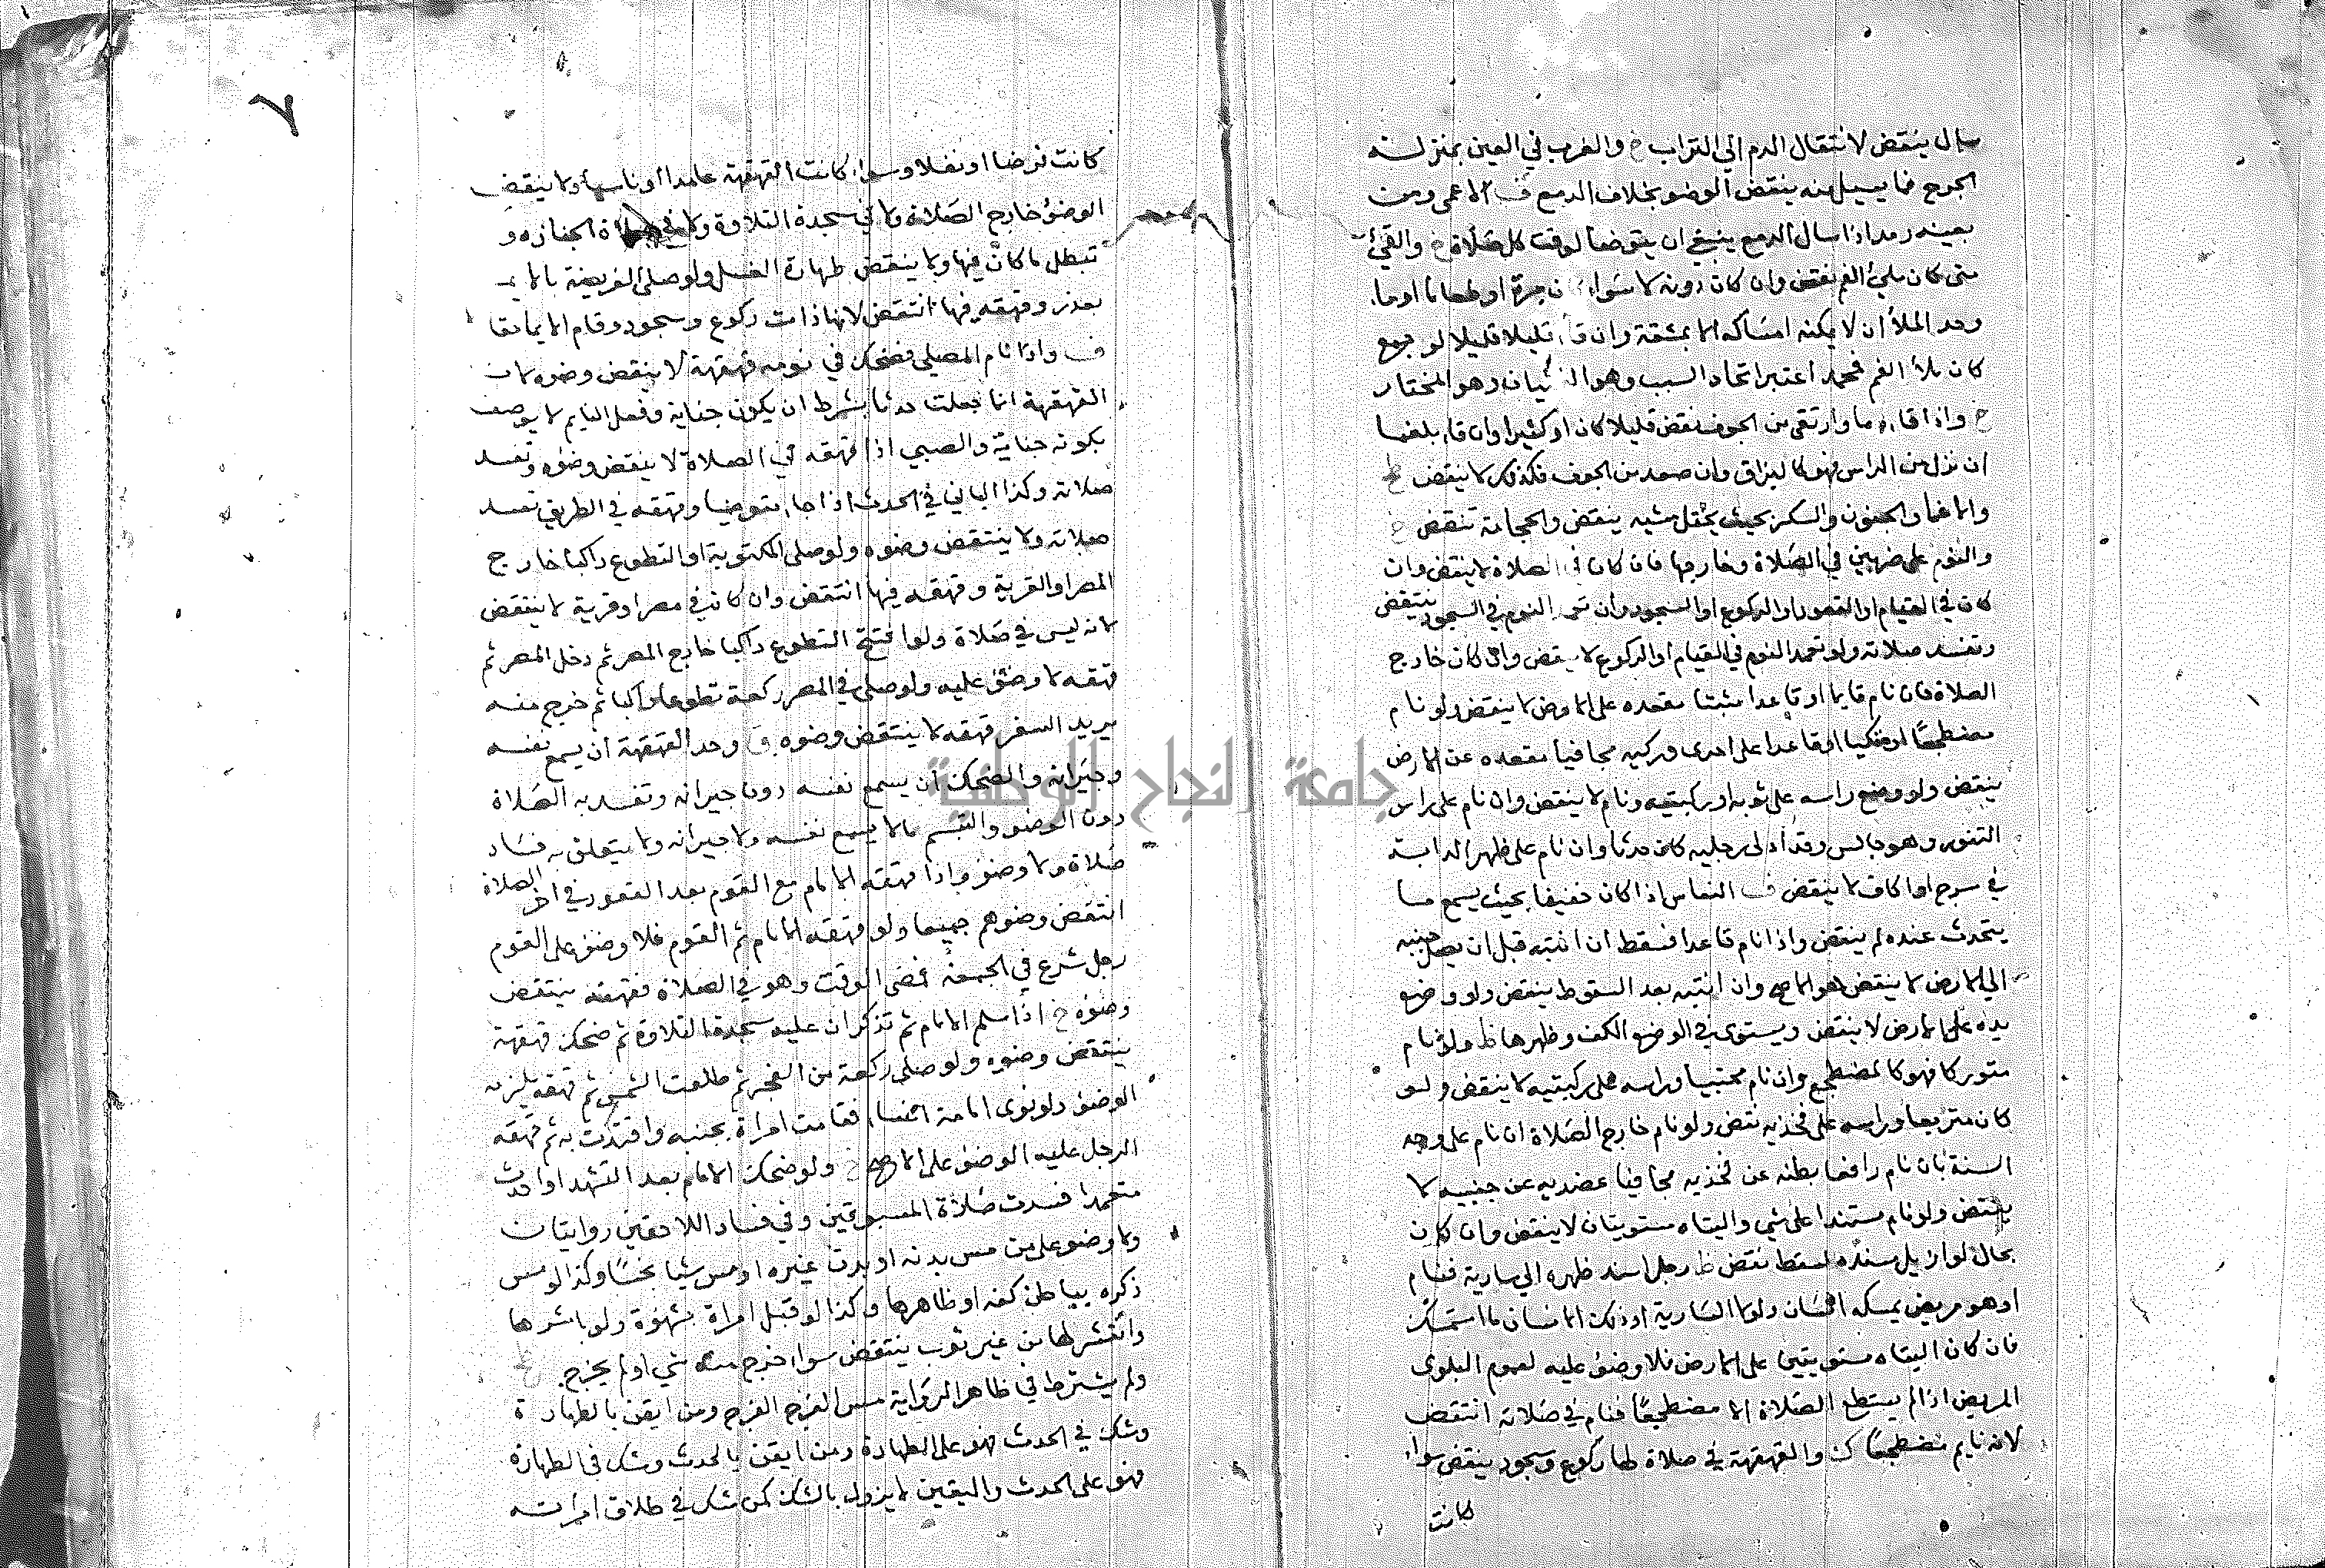 سال ينقض لانتقال الدم الي التراب خ والغرب في العين بمنزلة
الجرح فما يسيل منه ينقض الوضو بخلاف الدمع ف الاعمى ومن
بعينه رمد اذا سال الدمع ينبغي ان يتوضا لوقت كل صلاة خ والقئ
متى كان ملئ الفم نقض وان كان دونه لا سواء كان مرة او طعاما او ماء
وحد الملأ ان لا يمكنه امساكه الا بمشقة وان قاء قليلا قليلا لو جمع
كان ملأ الفم فمحمد اعتبر اتحاد السبب وهو الغثيان وهو المختار
خ واذا قاء دما وارتقى من الجوف نقض قليلا كان او كثيرا وان قاء بلغما
ان نزل من الراس فهو كالبزاق وان صعد من الجوف فكذلك لا ينقض
والاغما والجنون والسكر بحيث يختل مشيه ينقض والحجامة تنقض خ
والنوم على ضربين في الصلاة وخارجها فان كان في الصلاة لا ينقض وان
كان في القيام او القعود او الركوع او السجود وان تعمد النوم في السجود ينتقض
وتفسد صلاته ولو تعمد النوم في القيام او الركوع لا ينقض وان كان خارج
الصلاة فان نام قايما او قاعدا مثبتا مقعده على الارض لا ينقض ولو نام
مضطجعا او متكيا او قاعدا على احدى وركيه مجافيا مقعده عن الارض
ينقض ولو وضع راسه على ثوبه او ركبتيه ونام لا ينقض وان نام على راس
التنور وهو جالس وقد ادلى رجليه كان حدثا وان نام على ظهر الدابة
في سرج او اكاف لا ينقض ف النعاس اذا كان خفيفا بحيث يسمع ما
يتحدث عنده لم ينقض واذا نام قاعدا فسقط ان انتبه قبل ان يصل جنبه
الي الارض لا ينقض هو الاصح وان انتبه بعد السقوط ينقض ولو وضع
يده على الارض لا ينقض ويستوى في الوضع الكف وظهرها ظ ولو نام
متوركا فهو كالمضطجع وان نام محتبيا وراسه على ركبتيه لا ينقض ولو
كان متربعا وراسه على فخذيه نقض ولو نام خارج الصلاة ان نام على وجه
السنة بان نام رافعا بطنه عن فخذيه مجافيا عضديه عن جنبيه لا
ينقض ولو نام مستندا على شي واليتاه مستويتان لا ينقض وان كان
بحال لو ازيل سنده لسقط نقض ظ رجل اسند ظهره الي سارية فنام
او هو مريض يمسكه انسان ولولا السارية او ذلك الانسان ما استمسك
فان كان اليتاه مستويتين على الارض فلا وضوء عليه لعموم البلوى
المريض اذا لم يستطع الصلاة الا مضطجعا فنام في صلاته انتقض
لانه نايم مضطجعا ك والقهقهة في صلاة لها ركوع وسجود ينقض سواء
كانت
٧
كانت فرضا او نفلا وسواء كانت القهقهة عامدا او ناسيا ولا ينقض
الوضوء خارج الصلاة ولا في سجدة التلاوة ولا في صلاة الجنازه و
تبطل ما كان فيها ولا ينقض طهارة الغسل ولو صلى الفريضة بالايما
بعذر وقهقه فيها انتقض لانها ذات ركوع وسجود وقام الايما مقا
ف واذا نام المصلي فضحك في نومه قهقهة لا ينقض وضوه لان
القهقهة انما جعلت حدثا بشرط ان يكون جناية وفعل النايم لا يوصف
بكونه جناية والصبي اذا قهقه في الصلاة لا ينقض وضوه وتفسد
صلاته وكذا الباني في الحدث اذا جاء متوضيا وقهقه في الطريق تفسد
صلاته ولا ينتقض وضوه ولو صلى المكتوبة او التطوع راكبا خارج
المصر او القرية وقهقه فيها انتقض وان كان في مصر او قرية لا ينتقض
لانه ليس في صلاة ولو افتتح التطوع راكبا خارج المصر ثم دخل المصر ثم
قهقه لا وضوء عليه ولو صلى في المصر ركعة تطوعا راكبا ثم خرج منه
يريد السفر قهقه لا ينتقض وضوه ف وحد القهقهة ان يسمع نفسه
وجيرانه والضحك ان يسمع نفسه دون جيرانه وتفسد به الصلاة
دون الوضو والتبسم ما لا يسمع نفسه ولا جيرانه ولا يتعلق به فساد
صلاة ولا وضوء واذا قهقه الامام مع القوم بعد القعود في اخر الصلاة
انتقض وضوهم جميعا ولو قهقه الامام ثم القوم فلا وضوء على القوم
رجل شرع في الجمعة فمضى الوقت وهو في الصلاة فقهقه ينتقض
وضوه خ اذا سلم الامام ثم تذكر ان عليه سجدة التلاوة ثم ضحك قهقهة
ينتقض وضوه ولو صلى ركعة من الفجر ثم طلعت الشمس ثم قهقه يلزمه
الوضوء ولو نوى امامة النساء فقامت امراة بجنبه واقتدت به ثم قهقه
الرجل عليه الوضوء على الاصح خ ولو ضحك الامام بعد التشهد او احدث
متعمدا فسدت صلاة المسبوقين وفي فساد اللاحقين روايتان
ولا وضو على من مس بدنه او بدن غيره او مس شيا نجسا وكذا لو مس
ذكره بباطن كفه او ظاهرها وكذا لو قبل امراة بشهوة ولو باشرها
وانتشر لها من غير ثوب ينتقض سواء خرج منه شي او لم يخرج
ولم يشترط في ظاهر الرواية مس الفرج الفرج ومن ايقن بالطهارة
وشك في الحدث فهو على الطهارة ومن ايقن بالحدث وشك في الطهارة
فهو على الحدث واليقين لا يزول بالشك كمن شك في طلاق امراته
جامعة النجاح الوطنية